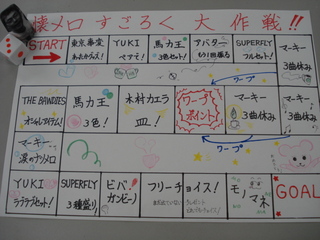 懐メロ すごろく 大作戦!!
START
東京事変
YUKI
馬力王
3色セット!
アバター
もう1段撮る
SUPERFLY
フルセット!
マーキー
3曲休み
ワープ
THE BAWDIES
オシャレタイム!
馬力王
3色!
木村カエラ
皿!
ワープ
ポイント
マーキー
3曲休み
マーキー
3曲休み
ワープ
マーキー
涙のナツメロ
YUKI
ラブラブセット!
SUPERFLY
3種盛り
ビバ
カンピーノ
フリーチョイス!
モノマネ
GOAL